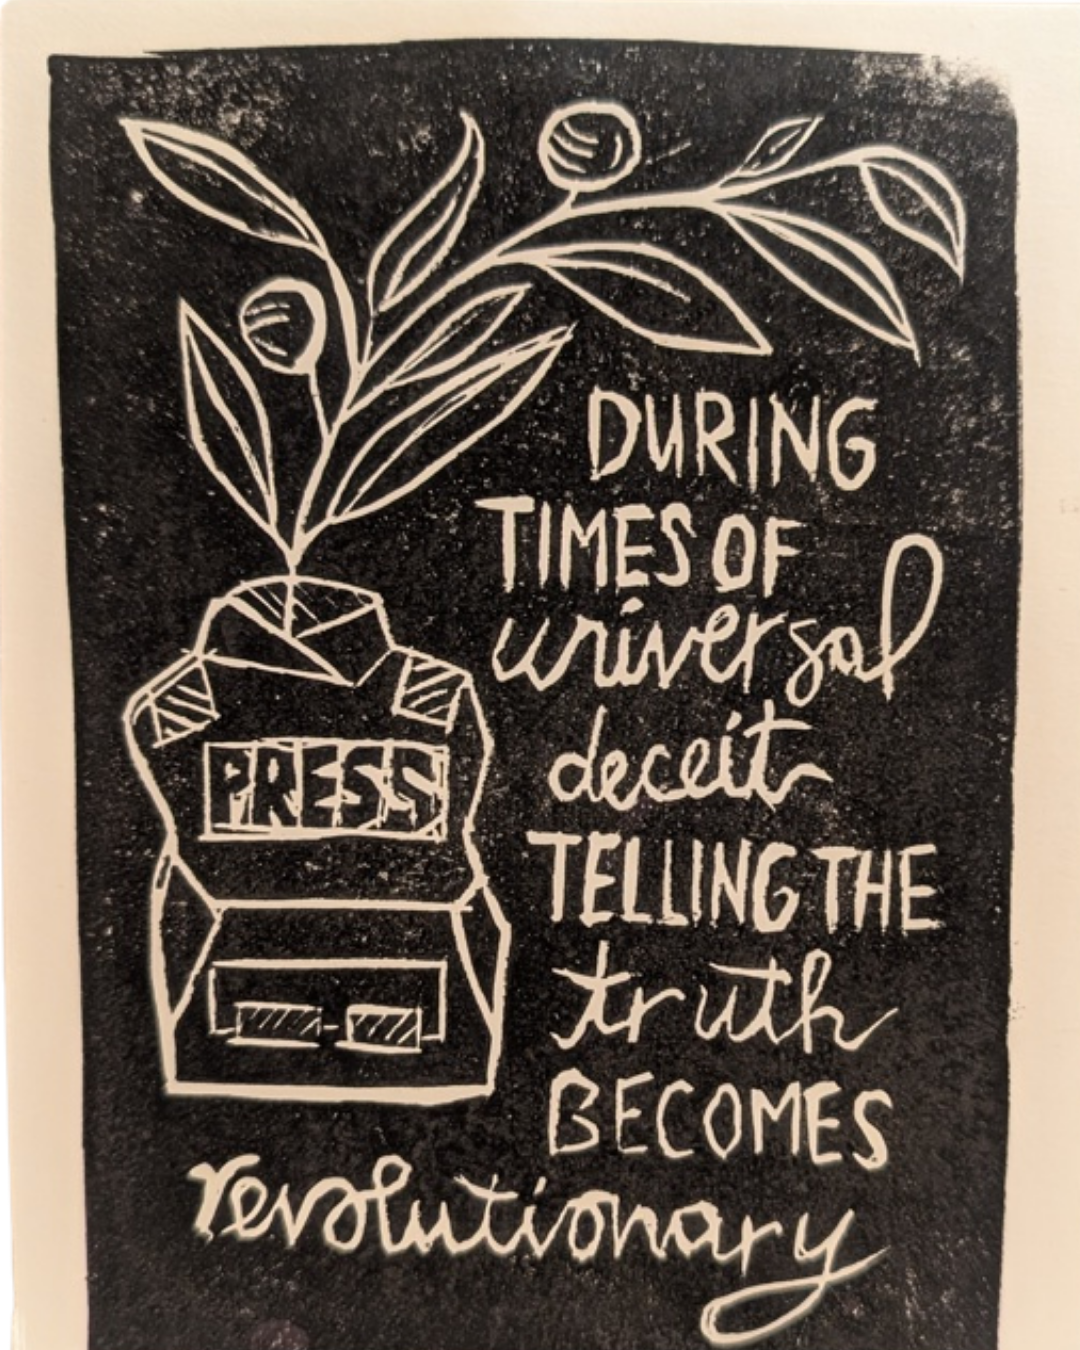 DURING
TIMES OF
universal
deceit
PRESS
TELLING THE
truth
BECOMES
revolutionary